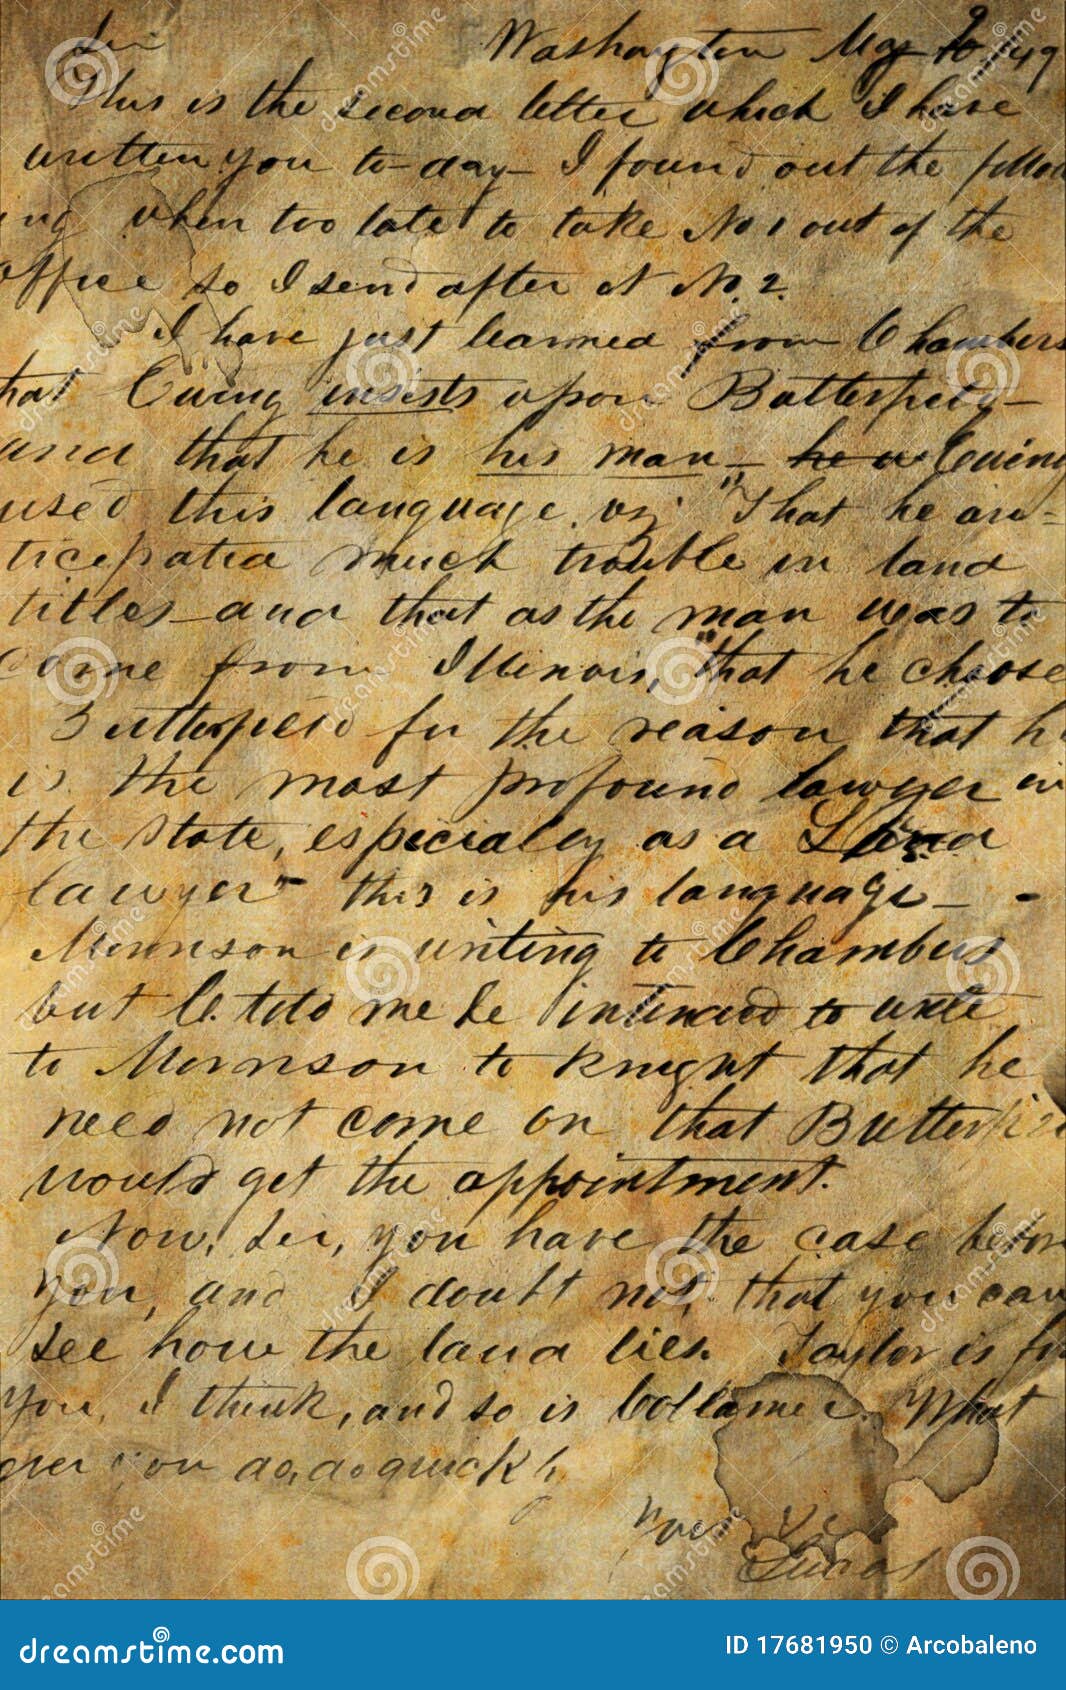 Sir Washington May 10 9 49
This is the second letter which I have
written you to-day- I found out the follow
ing when too late to take No 1 out of the
Office so I send after it No. 2.
I have just learned from Chambers
that Ewing insists upon Butterfield-
and that he is his man - he is Ewing
used this language, viz; "That he an=
ticepated much trouble in land
titles-and that as the man was to
come from Illinois," "that he choose
Butterfield for the reason that he
is the most profound lawyer in
the State, especialey as a Land
lawyer" this is his language - -
Morrison is writing to Chambers
but C. told me he intended to write
to Morrison to knight that he
need not come on that Butterfield
would get the appointment.
Now, Sir, you have the case before
you, and I doubt not, that you can
see how the land lies. Taylor is for
you, I think, and so is Collamer. What
ever you do, do quickly
Yours &c
Lucas
dreamstime.com
ID 17681950 © Arcobaleno